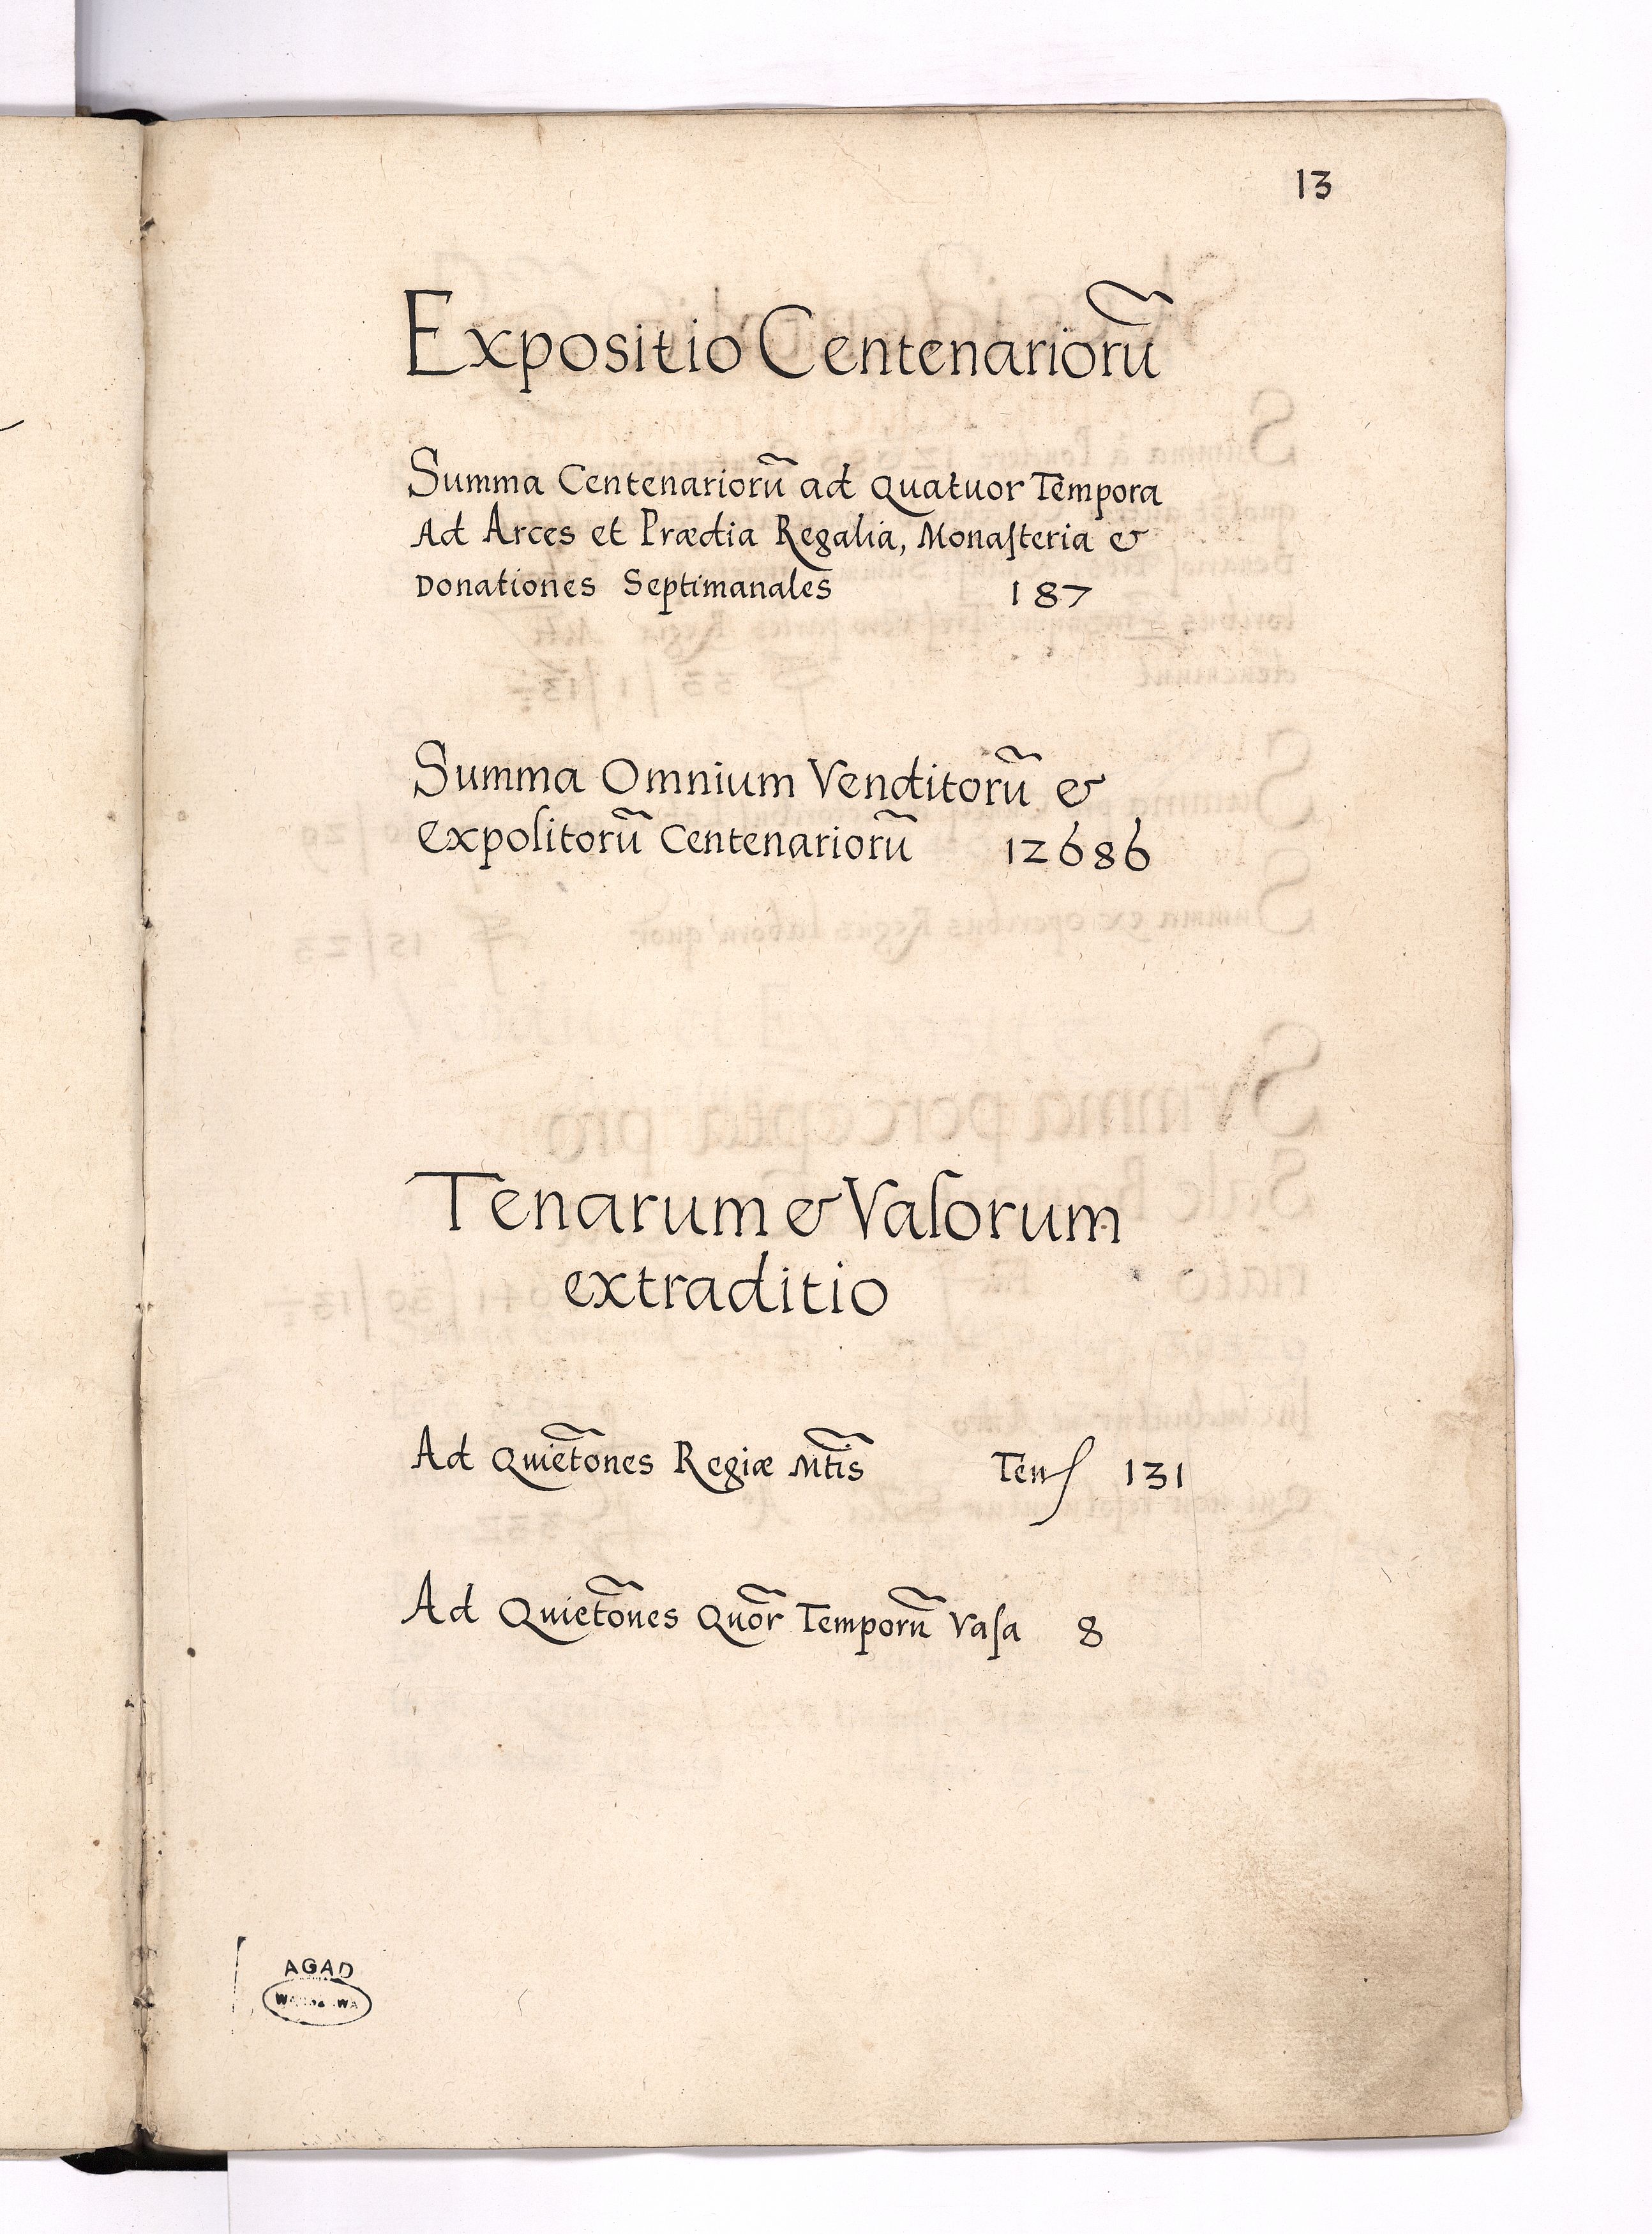 13
Expositio Centenariorũ
Summa Centenariorũ ad Quatuor Tempora
Ad Arces et Prædia Regalia, Monaſteria &
Donationes Septimanales 187
Summa Omnium Venditorũ &
Expolitorũ Centenariorũ 12686
Tenarum & Vaſorum
extraditio
Ad Quiet̃ones Regiæ Mt̃is Tenſ 131
Ad Quiet̃ones Quor̃ Temporũ Vaſa 8
AGAD